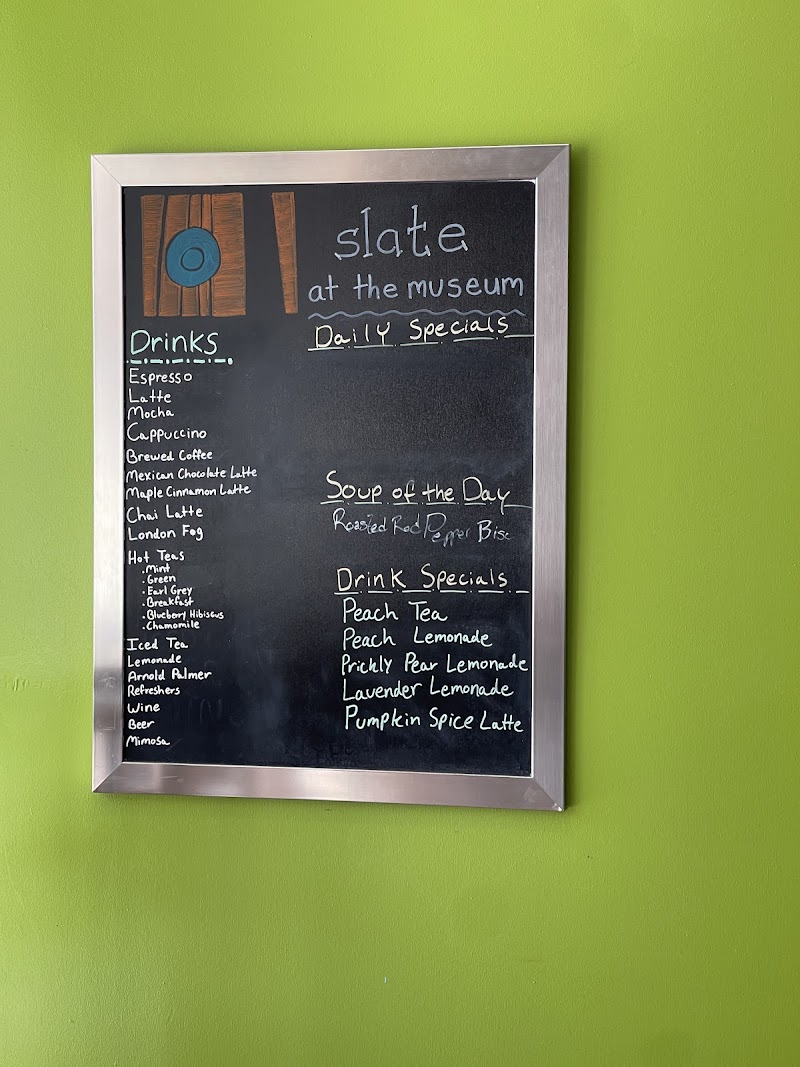 slate
at the museum
Daily Specials
Drinks
Espresso
Latte
Mocha
Cappuccino
Brewed Coffee
Mexican Chocolate Latte
Maple Cinnamon Latte
Chai Latte
London Fog
Hot Teas
.Mint
.Green
.Earl Grey
.Breakfast
.Blueberry Hibiscus
.Chamomile
Iced Tea
Lemonade
Arnold Palmer
Refreshers
Wine
Beer
Mimosa
Soup of the Day
Roasted Red Pepper Bisc
Drink Specials
Peach Tea
Peach Lemonade
Prickly Pear Lemonade
Lavender Lemonade
Pumpkin Spice Latte